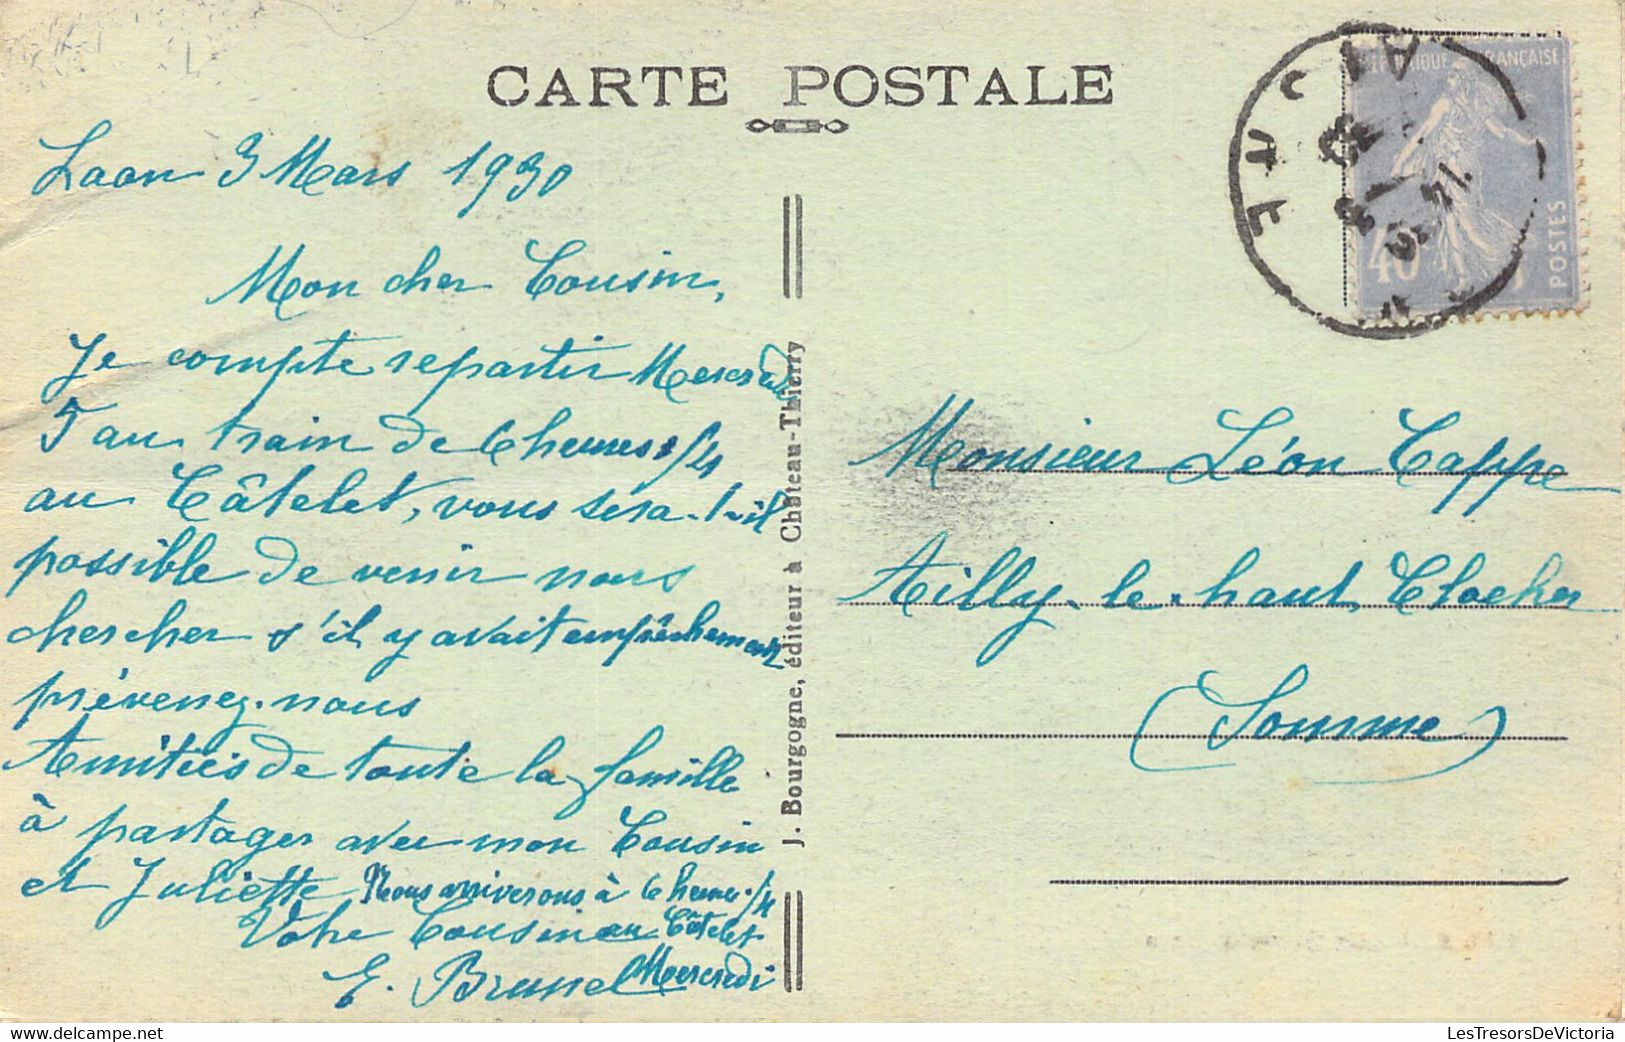 CARTE POSTALE
Laon 3 Mars 1930
Mon cher Cousin,
Je compte repartir Mercredi
5 au train de 6 heures 1/4
au Câtelet, vous sera-t-il
possible de venir nous
chercher s'il y avait empêchement
prévenez-nous
Amitiés de toute la famille
à partager avec mon Cousin
et Juliette
Nous arriverons à 6 heures 1/4
au Câtelet
Mercredi
Votre Cousin
E. Brunel
J. Bourgogne, éditeur à Château-Thierry
RÉPUBLIQUE FRANÇAISE
40
POSTES
Monsieur Léon Cappe
Ailly-le-haut Clocher
(Somme)
LesTresorsDeVictoria.com